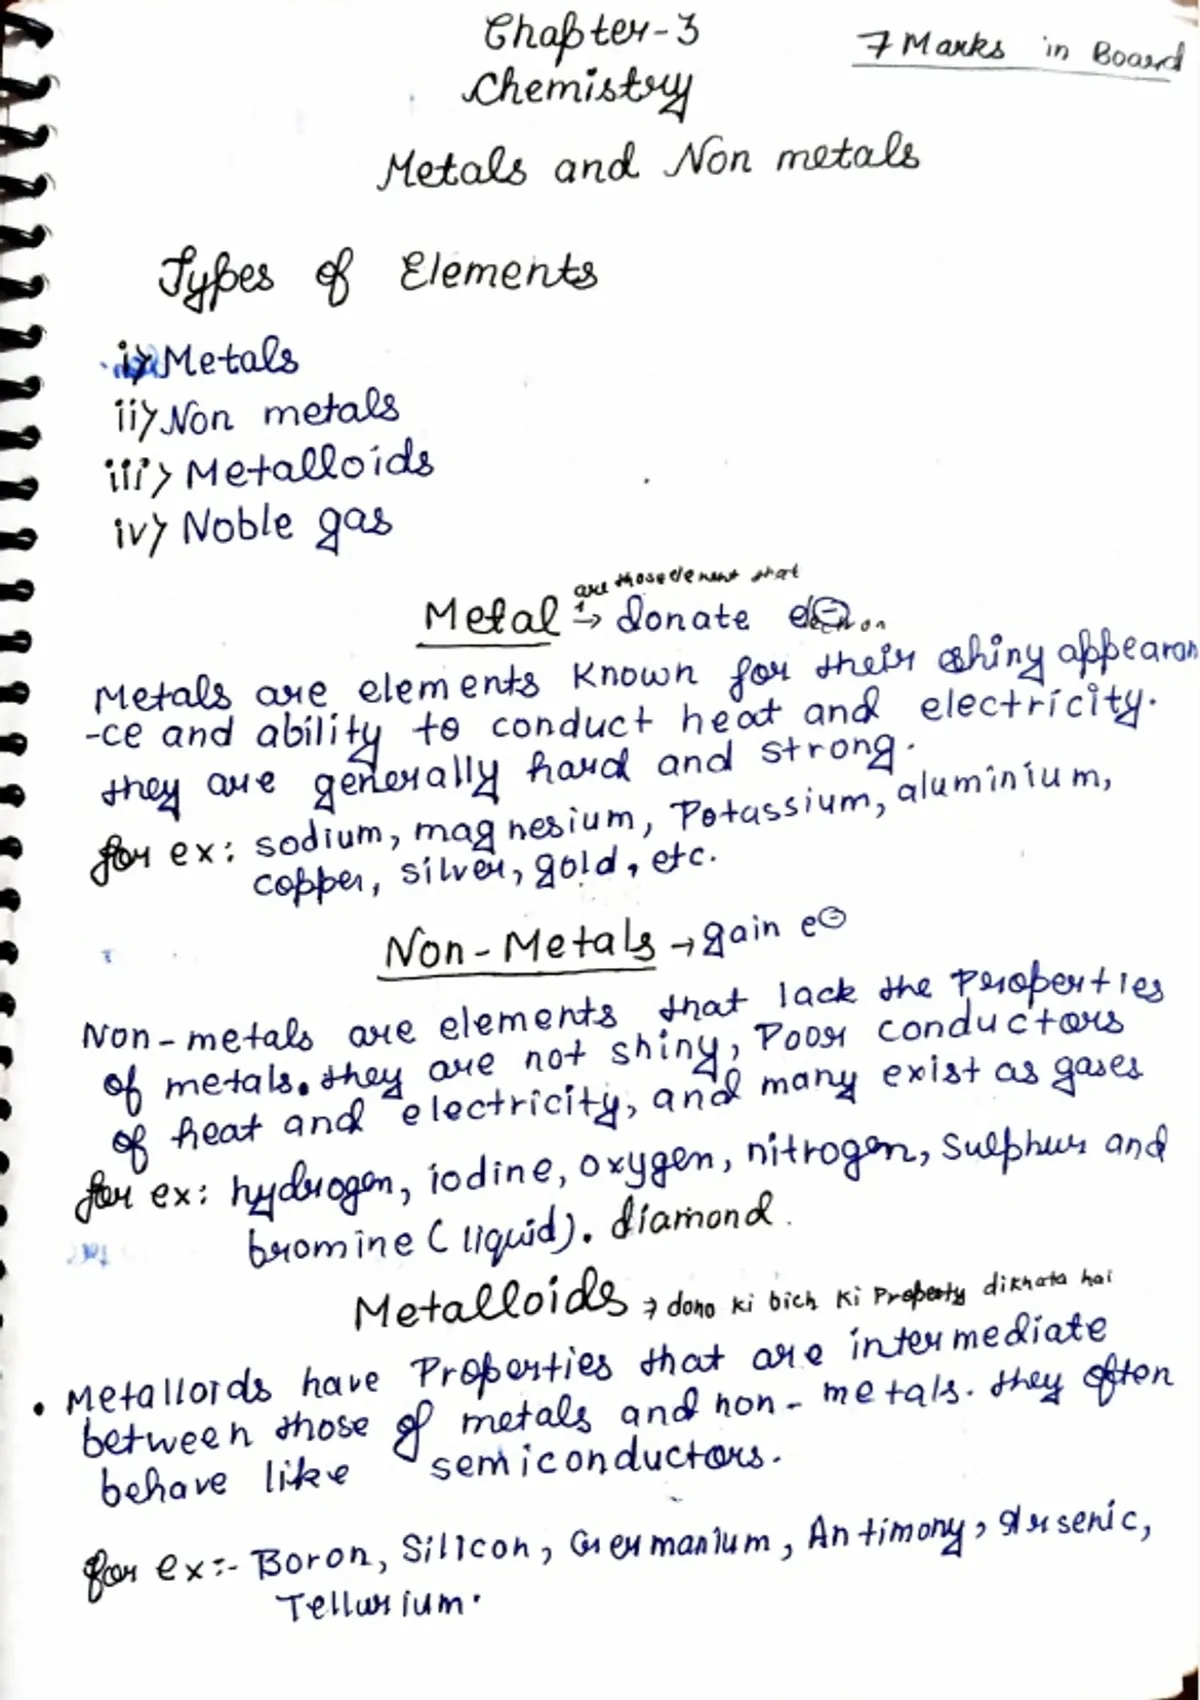 Chapter-3
7 Marks in Board
Chemistry
Metals and Non metals
Types of Elements
i) Metals
ii) Non metals
iii) Metalloids
iv) Noble gas
are those element that
Metal → donate electron
Metals are elements known for their shiny appearan
-ce and ability to conduct heat and electricity.
they are generally hard and strong.
for ex: sodium, magnesium, Potassium, aluminium,
copper, silver, gold, etc.
Non-Metals → gain e⊖
Non-metals are elements that lack the Properties
of metals. they are not shiny, Poor conductors
of heat and electricity, and many exist as gases
for ex: hydrogen, iodine, oxygen, nitrogen, Sulphur and
bromine (liquid). diamond.
Metalloids → dono ki bich ki Property dikhata hai
• Metalloids have Properties that are intermediate
between those of metals and non-metals. they often
behave like semiconductors.
for ex:- Boron, Silicon, Germanium, Antimony, Arsenic,
Tellurium.